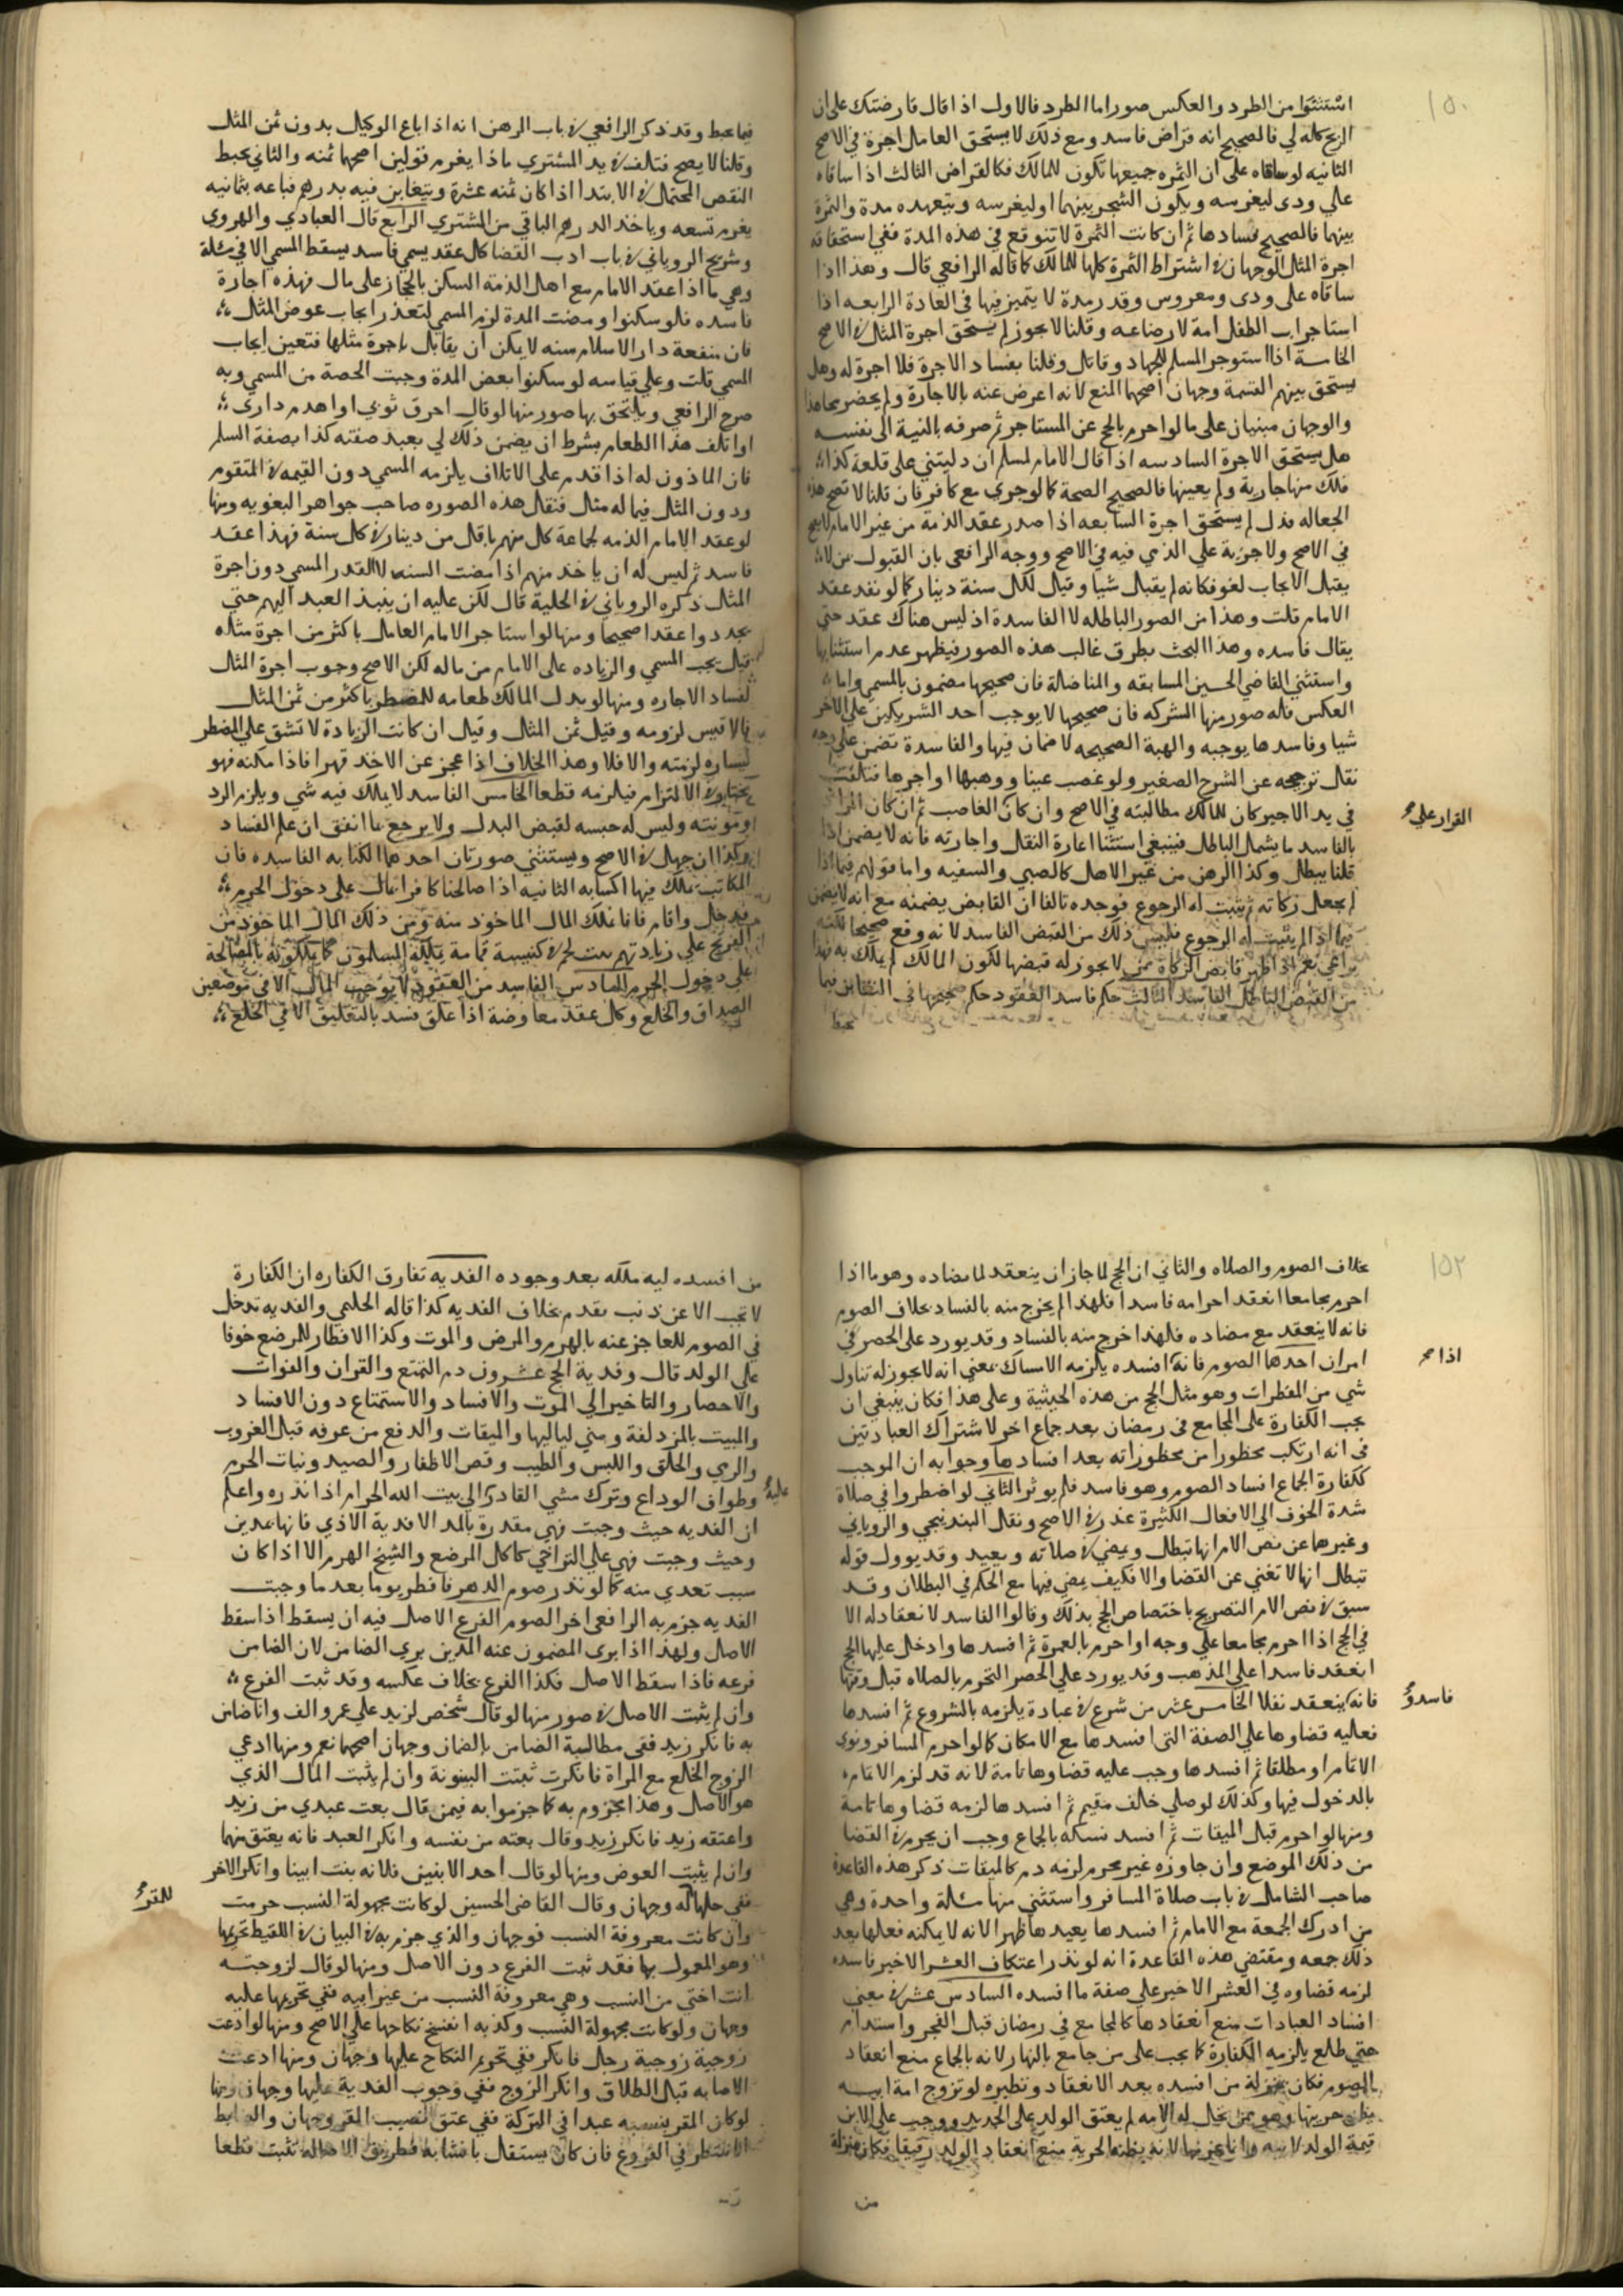 ١٥٠
استثنوا من الطرد والعكس صورا اما الطرد فالاول اذا قال قارضتك على ان
الربح كله لي فالصحيح انه قراض فاسد ومع ذلك لا يستحق العامل اجرة في الاصح
الثانيه لو ساقاه على ان الثمره جميعها تكون للمالك فكالقراض الثالث اذا ساقاه
علي ودى ليغرسه ويكون الشجر بينهما او ليغرسه ويتعهده مدة والثمرة
بينهما فالصحيح فسادها ثم ان كانت الثمرة لا تتوقع في هذه المدة ففي استحقاقه
اجرة المثل الوجهان في اشتراط الثمرة كلها للمالك كما قاله الرافعي قال وهذا اذا
ساقاه على ودى ومغروس وقدر مدة لا يتميز فيها في العادة الرابعه اذا
استاجر اب الطفل امه لارضاعه وقلنا لا يجوز لم يستحق اجرة المثل في الاصح
الخامسة اذا استوجر المسلم للجهاد وقاتل وقلنا بفساد الاجرة فلا اجرة له وهل
يستحق بينهم القسمة وجهان اصحهما المنع لانه اعرض عنه بالاجارة ولم يحضر مجاهدا
والوجهان مبنيان على ما لو احرم بالحج عن المستاجر ثم صرفه بالنية الى نفسه
هل يستحق الاجرة السادسه اذا قال الامام لمسلم ان دليتني على قلعة كذا
فلك منها جارية ولم يعينها فالصحيح الصحة كما لو جرى مع كافر فان قلنا لا تصح هذه
الجعاله فدل لم يستحق اجرة السابعه اذا صدر عقد الذمة من غير الامام لا يصح
في الاصح ولا جزية علي الذمي فيه في الاصح ووجه الرافعى بان القبول من لا
يقبل الايجاب لغو فكانه لم يقبل شيا وقيل لكل سنة دينار كما لو نفد عقد
الامام قلت وهذا من الصور الباطله لا الفاسدة اذ ليس هناك عقد حتي
يقال فاسده وهذا البحث يطرق غالب هذه الصور فيظهر عدم استثنايها
واستثني القاضي الحسين المسابقه والمناضلة فان صحيحها مضمون بالمسمى واما
العكس فله صور منها الشركه فان صحيحها لا يوجب احد الشريكين علي الاخر
شيا وفاسدها يوجبه والهبة الصحيحه لا ضمان فيها والفاسدة تضمن علي وجه
نقل ترجيحه عن الشرح الصغير ولو غصب عينا ووهبها او اجرها فتلفت
في يد الاجير كان للمالك مطالبته في الاصح وان كان الغاصب ثم ان كان المراد
القرار علي صح
بالفاسد ما يشمل الباطل فينبغي استثنا اعارة النقل واجارته فانه لا يضمن اذا
قلنا يبطل وكذا الرهن من غير الاهل كالصبي والسفيه واما قولهم فيما اذا
لم يعجل زكاته ثم يثبت له الرجوع فوجده تالفا ان القابض يضمنه مع انه لا يضمن
فيما اذا لم يثبت له الرجوع فليس ذلك من القبض الفاسد لانه وقع صحيحا لكنه
يراعي نعم اذا ظهر قابض الزكاة ممن لا يجوز له قبضها لكون المالك لم يملك به فهذا
من القبض الباطل الفاسد الثالث حكم فاسد العقود حكم صحيحها في التقابض فيما
يحبط
فيما يحبط وقد ذكر الرافعي في باب الرهن انه اذا باع الوكيل بدون ثمن المثل
وقلنا لا يصح فتلف في يد المشتري ماذا يغرم قولين اصحهما ثمنه والثاني يحبط
النقص المحتمل في الابتدا اذا كان ثمنه عشرة ويتغابن فيه بدرهم فباعه بثمانيه
يغرم تسعه وياخذ الدرهم الباقي من المشتري الرابع قال العبادي والهروي
وشريح الروياني في باب ادب القضا كل عقد يسمى فاسد يسقط المسمى الا في مسئلة
وهي ما اذا عقد الامام مع اهل الذمة السكن بالحجاز على مال فهذه اجارة
فاسده فلو سكنوا ومضت المدة لزم المسمى لتعذر ايجاب عوض المثل
فان منفعة دار الاسلام سنه لا يمكن ان يقابل باجرة مثلها فتعين ايجاب
المسمى قلت وعلي قياسه لو سكنوا بعض المدة وجبت الحصة من المسمى وبه
صرح الرافعي ويلتحق بها صور منها لو قال احرق ثوبي او اهدم داري
او اتلف هذا الطعام بشرط ان يضمن ذلك لي بعبد صفته كذا بصفة السلم
فان الماذون له اذا قدم على الاتلاف يلزمه المسمى دون القيمه في المتقوم
ودون المثل فيما له مثل فنقل هذه الصوره صاحب جواهر البغويه ومنها
لو عقد الامام الذمه لجماعة كل منهم باقل من دينار في كل سنة فهذا عقد
فاسد ثم ليس له ان ياخذ منهم اذا مضت السنه الا القدر المسمى دون اجرة
المثل ذكره الروياني في الحلية قال لكن عليه ان ينبذ العبد اليهم حتي
يجددوا عقدا صحيحا ومنها لو استاجر الامام العامل باكثر من اجرة مثله
قيل يجب المسمى والزياده على الامام من ماله لكن الاصح وجوب اجرة المثل
لفساد الاجاره ومنها لو بدل المالك طعامه للمضطر باكثر من ثمن المثل
فالاقيس لزومه وقيل ثمن المثل وقيل ان كانت الزيادة لا تشق علي المضطر
ليساره لزمته والا فلا وهذا الخلاف اذا عجز عن الاخذ قهرا فاذا مكنه فهو
مختار في الالتزام فيلزمه قطعا الخامس الفاسد لا يملك فيه شي ويلزم الرد
ومونته وليس له حبسه لقبض البدل ولا يرجع بما انفق ان علم الفساد
وكذا ان جهل في الاصح ويستثني صورتان احدهما الكتابه الفاسده فان
المكاتب يملك فيها اكسابه الثانيه اذا صالحنا كافرا بمال على دخول الحرم
فدخل واقام فانا نملك المال الماخوذ منه ومن ذلك المال الماخوذ من
على دخول الحرم السادس الفاسد من العقود لا يوجب المال الا في موضعين
الصداق والخلع وكل عقد معاوضة اذا علق فسد بالتعليق الا في الخلع
١٥٢
بخلاف الصوم والصلاه والثاني ان الحج لما جاز ان ينعقد لما يضاده وهو ما اذا
احرم مجامعا انعقد احرامه فاسدا فلهذا لم يخرج منه بالفساد بخلاف الصوم
فانه لا ينعقد مع مضاده فلهذا خرج منه بالفساد وقد يورد على الحصر في
امران احدها الصوم فانه افسده يلزمه الامساك بمعني انه لا يجوز له تناول
اذا صح
شي من المفطرات وهو مثل الحج من هذه الحيثية وعلى هذا فكان ينبغي ان
يجب الكفارة على المجامع في رمضان بعد جماع اخر لاشتراك العبادتين
في انه ارتكب محظورا من محظوراته بعد افسادها وجوابه ان الموجب
ككفارة الجماع افساد الصوم وهو فاسد فلم يوثر الثاني لو اضطروا في صلاة
شدة الخوف الي الافعال الكثيرة عذر في الاصح ونقل البندنيجي والروياني
وغيرها عن نص الام انها تبطل ويمضي في صلاته ويعيد وقد يوول قوله
تبطل انها لا تغني عن القضا والا فكيف يمضي فيها مع الحكم في البطلان وقد
سبق في نص الام التصريح باختصاص الحج بذلك وقالوا الفاسد لا انعقاد له الا
في الحج اذا احرم مجامعا علي وجه او احرم بالعمرة ثم افسدها وادخل عليها الحج
انعقد فاسدا علي المذهب وقد يورد علي الحصر التحرم بالصلاه قبل وقتها
فانه ينعقد نفلا الخامس عشر من شرع في عبادة يلزمه بالشروع ثم افسدها
فاسد و
فعليه قضاوها علي الصفة التي افسدها مع الامكان كما لو احرم المسافر ونوى
الاتمام او مطلقا ثم افسدها وجب عليه قضاوها تامة لانه قد لزم الاتمام
بالدخول فيها وكذلك لو صلي خلف مقيم ثم افسدها لزمه قضاوها تامة
ومنها لو احرم قبل الميقات ثم افسد نسكه بالجماع وجب ان يحرم في القضا
من ذلك الموضع وان جاوزه غير محرم لزمه دم كالميقات ذكر هذه القاعدة
صاحب الشامل في باب صلاة المسافر واستثني منها مسئلة واحدة وهي
من ادرك الجمعة مع الامام ثم افسدها يعيدها ظهرا لانه لا يمكنه فعلها بعد
ذلك جمعه ومقتضي هذه القاعدة انه لو نذر اعتكاف العشر الاخير فاسده
لزمه قضاوه في العشر الاخير على صفة ما افسده السادس عشر في معني
افساد العبادات منع انعقادها كالمجامع في رمضان قبل الفجر واستدام
حتي طلع يلزمه الكفارة كما يجب على من جامع بالنهار لانه بالجماع منع انعقاد
الصوم فكان بمنزلة من افسده بعد الانعقاد ونظيره لو تزوج امة ابيه
يظن حريتها وهو ممن يحل له الامه لم يعتق الولد على الجديد ووجب علي الابن
قيمة الولد لابيه وانما غرمها لانه بظنه الحرية منع انعقاد الولد رقيقا فكان بمنزلة
من
من افسده ليه ملكه بعد وجوده الفديه تفارق الكفاره ان الكفارة
لا تجب الا عن ذنب يقدم بخلاف الفديه كذا قاله الحليمي والفديه تدخل
في الصوم للعاجز عنه بالهرم والمرض والموت وكذا الافطار للمرضع خوفا
على الولد قال وفدية الحج عشرون دم التمتع والقران والفوات
والاحصار والتاخير الي الموت والافساد والاستمتاع دون الافساد
والمبيت بالمزدلفة ومني لياليها والميقات والدفع من عرفه قبل الغروب
والرمي والحلق واللبس والطيب وقص الاظفار والصيد ونبات الحرم
وطواف الوداع وترك مشي القادر الى بيت الله الحرام اذا نذره واعلم
عليه
ان الفديه حيث وجبت فهي مقدرة بالمد الا فدية الاذي فانها مدين
وحيث وجبت فهي علي التراخي كما كل المرضع والشيخ الهرم الا اذا كان
سبب تعدي منه كما لو نذر صوم الدهر فافطر يوما بعد ما وجبت
الفديه جزم به الرافعي اخر الصوم الفرع الاصل فيه ان يسقط اذا سقط
الاصل ولهذا اذا برى المضمون عنه المدين بري الضامن لان الضامن
فرعه فاذا سقط الاصل فكذا الفرع بخلاف عكسه وقد ثبت الفرع
وان لم يثبت الاصل في صور منها لو قال شخص لزيد علي عمرو الف وانا ضامن
به فانكر زيد ففي مطالبة الضامن بالضمان وجهان اصحهما نعم ومنها ادعي
الزوج الخلع مع المراة فانكرت ثبتت البينونة وان لم يثبت المال الذي
هو الاصل وهذا مجزوم به كما جزموا به فيمن قال بعت عبدي من زيد
واعتقه زيد فانكر زيد وقال بعته من نفسه وانكر العبد فانه يعتق منهما
وان لم يثبت العوض ومنها لو قال احد الابنين فلانه بنت ابينا وانكر الاخر
ففي حلها له وجهان وقال القاضي الحسين لو كانت مجهولة النسب حرمت
للمقر
وان كانت معروفة النسب فوجهان والذي جزم به في البيان في اللقيط تحريمها
وهو المعمول بها فقد ثبت الفرع دون الاصل ومنها لو قال لزوجته
انت اختي من النسب وهي معروفة النسب من غير ابيه ففي تحريمها عليه
وجهان ولو كانت مجهولة النسب وكذبه انفسخ نكاحها علي الاصح ومنها لو ادعت
زوجية زوجية رجل فانكر ففي تحريم النكاح عليها وجهان ومنها ادعت
الاصابه قبل الطلاق وانكر الزوج ففي وجوب الفدية عليها وجهان ومنها
لو كان المقر بنسبه عبدا في التركة ففي عتق نصيب المقر وجهان والضابط
في الفروع فان كان يستقل بانشايه فطريق الاصاله يثبت قطعا